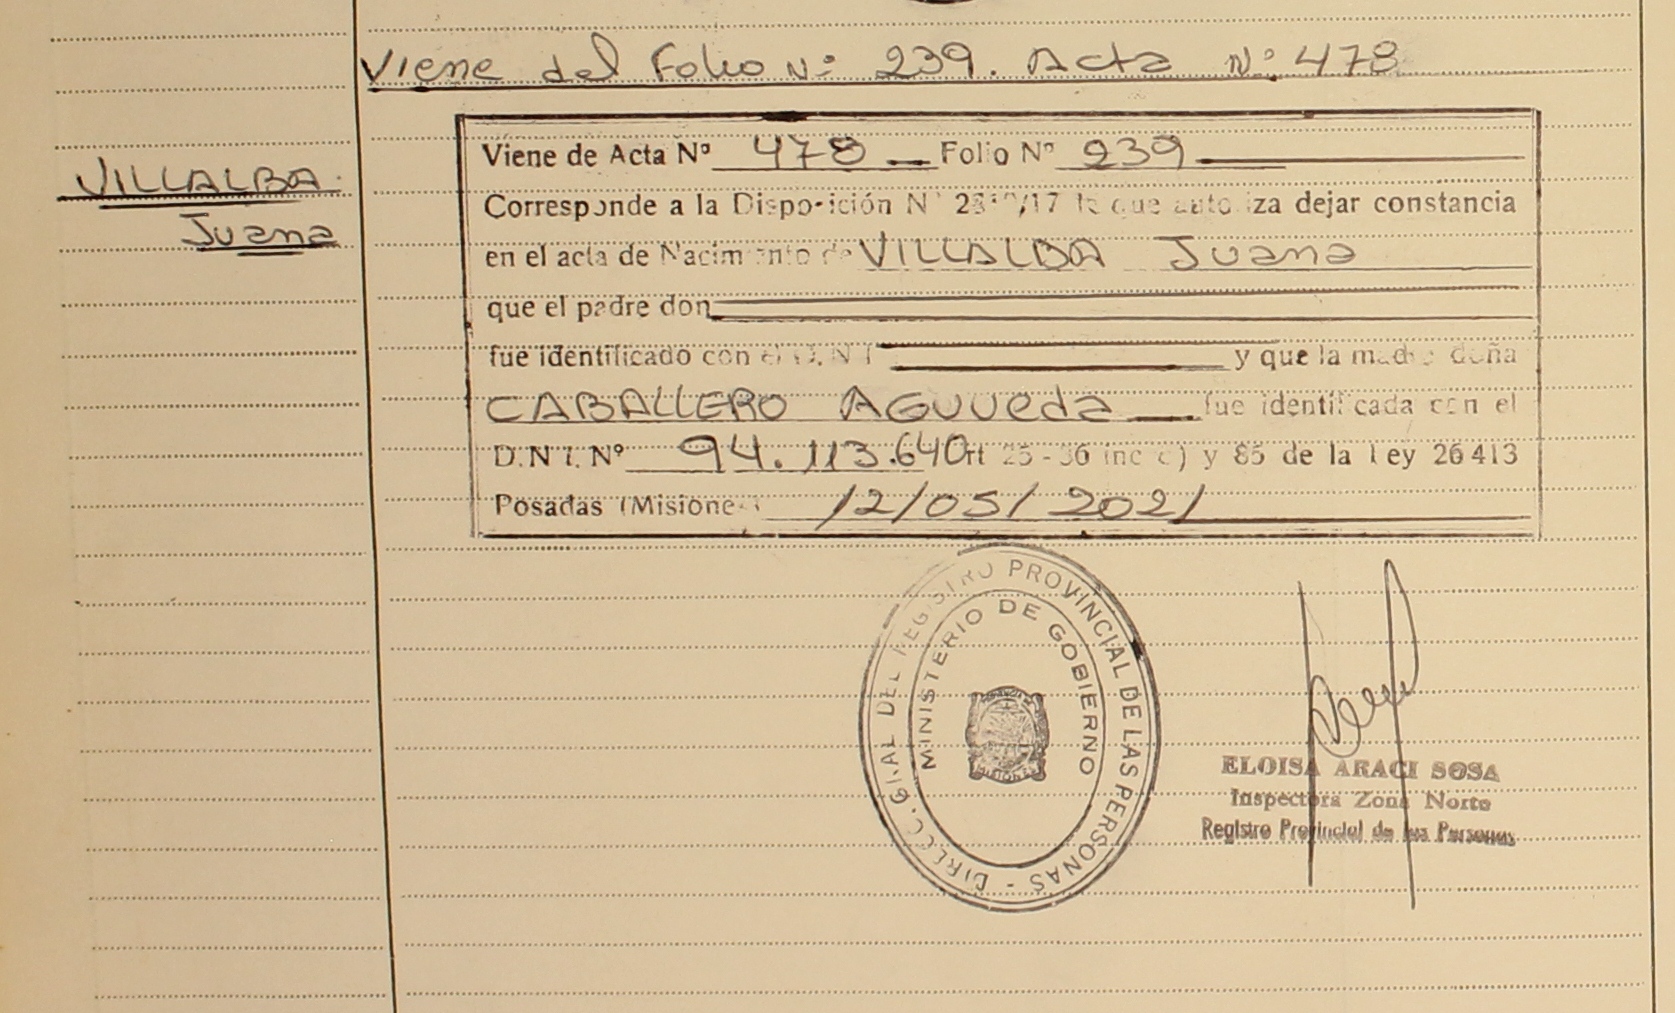 Viene del Folio Nº 239. Acta Nº 478
VILLALBA
Juana
Viene de Acta Nº 478 Folio Nº 239
Corresponde a la Disposición Nº /17 la que autoriza dejar constancia
en el acta de Nacimiento de VILLALBA Juana
que el padre don
fue identificado con el D.N.I y que la madre doña
CABALLERO Aguueda fue identificada con el
D.N.I. Nº 94.113.640 rt 25-36 inc c) y 85 de la Ley 26413
Posadas (Misiones) 12/05/2021
DIRECC. GRAL DEL REGISTRO PROVINCIAL DE LAS PERSONAS -
MINISTERIO DE GOBIERNO
MISIONES
ELOISA ARACI SOSA
Inspectora Zona Norte
Registro Provincial de las Personas